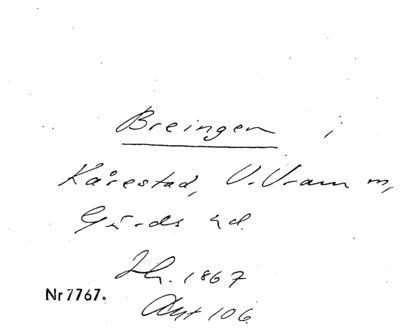 Breingen i
Kårestad, V. Vram m,
Gärds hd.
Jh. 1867
Akt 106
Nr 7767.